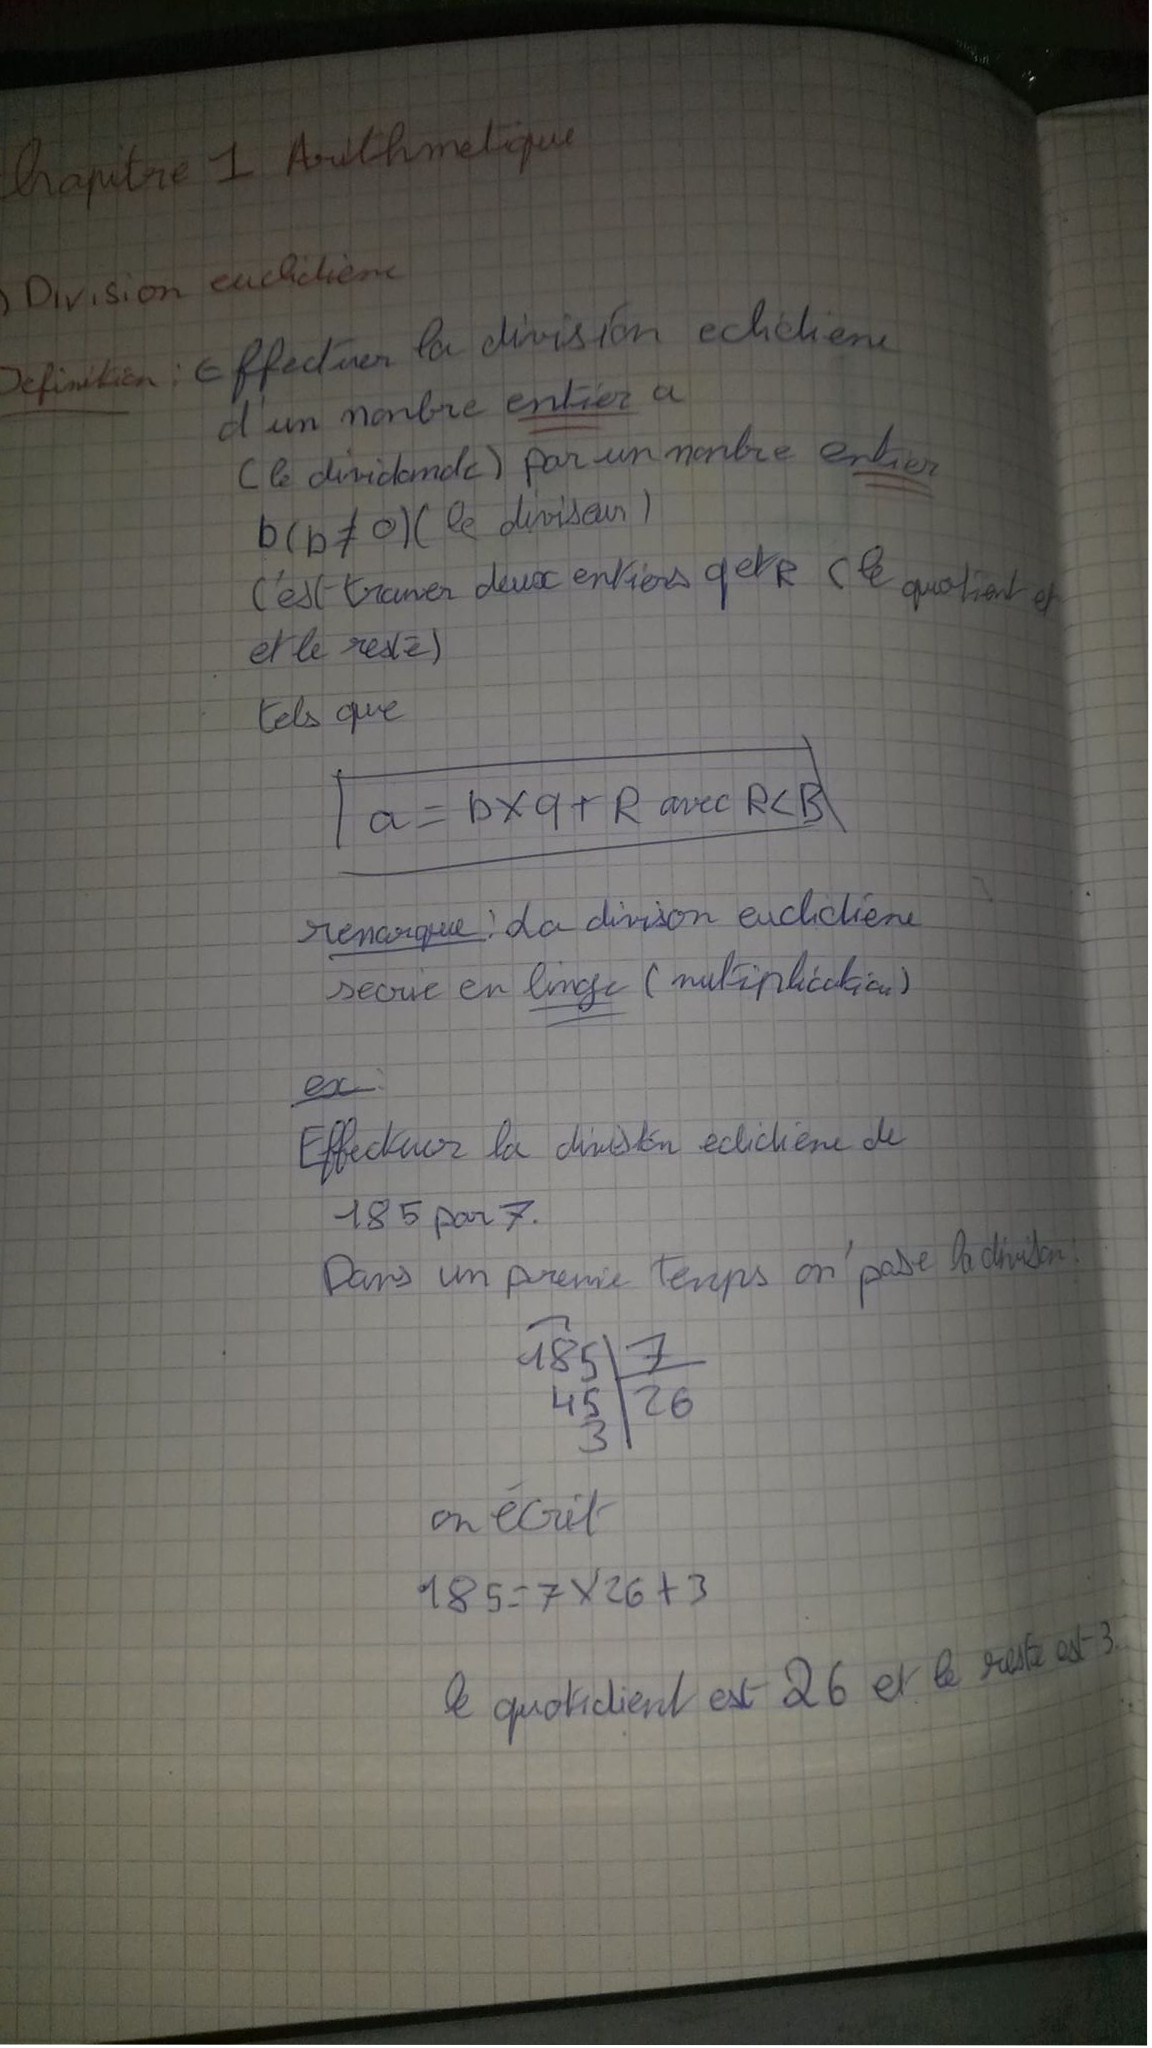 Chapitre 1 Arithmetique
) Division euclidiene
Definition : Effectuer la division eclidiene
d'un nonbre entier a
(le dividande) par un nonbre entier
b (b ≠ 0) (le diviseur)
C'est trouver deux entiers q et R (le quotient et
et le reste)
tels que
a = b x q + R avec R < B
remarque : La divison euclidiene
secrie en linge (multiplication)
ex :
Effectuer la division eclidiene de
185 par 7.
Dans un premie temps on pose la divison :
185 | 7
45 | 26
3
on écrit
185 = 7 x 26 + 3
le quotidient est 26 et le reste est 3.